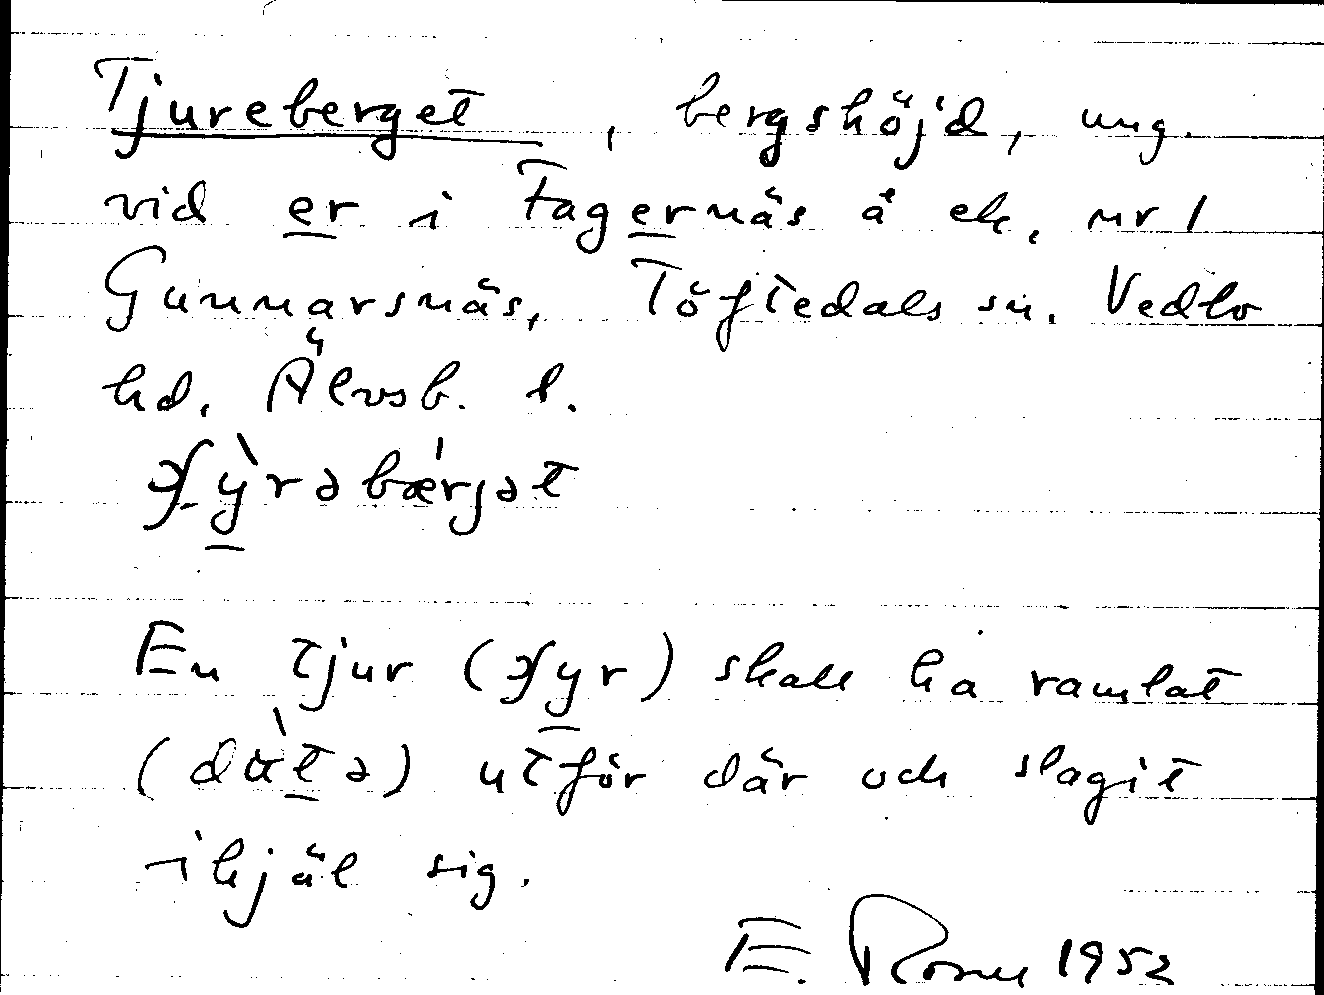 Tjureberget, bergshöjd, ung.
vid er i Fagernäs å ek. nr 1
Gunnarsnäs, Töftedals sn. Vedbo
hd. Älvsb. l.
En tjur (yr) skall ha ramlat
utför där och slagit
ihjäl sig.
E. 1952